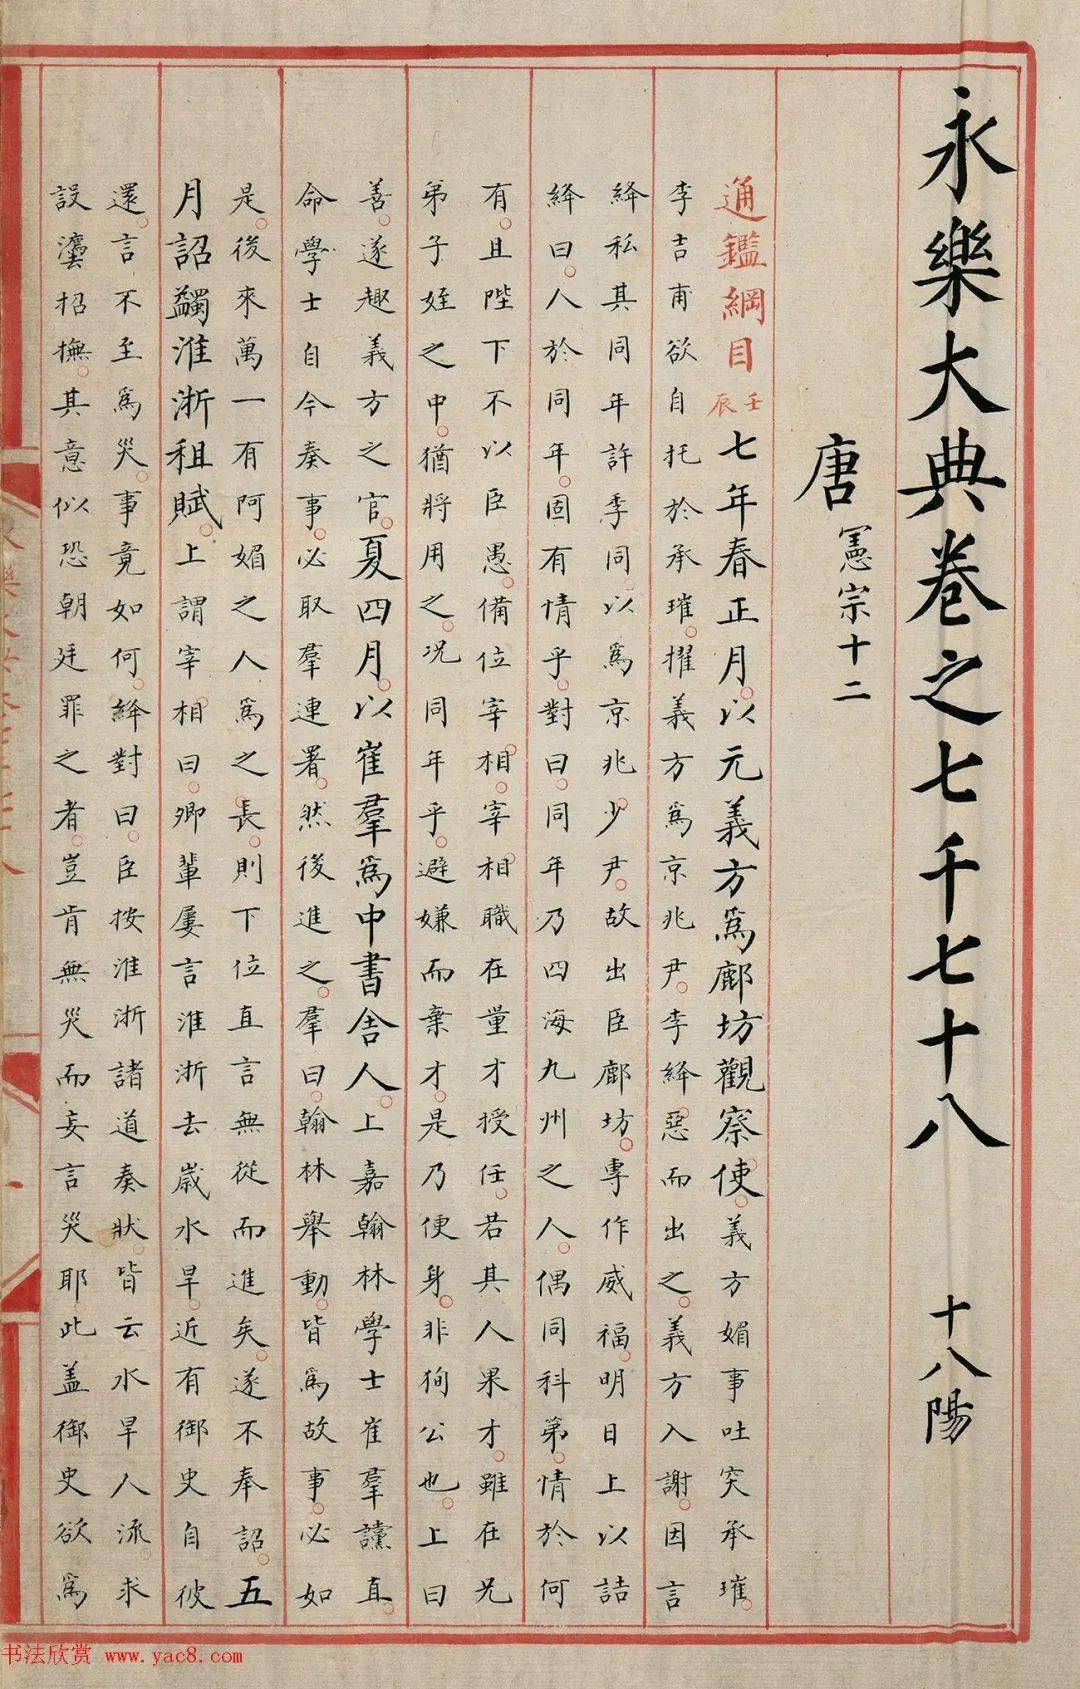 永樂大典卷之七千七十八 十八陽
唐 憲宗十二
通鑑綱目 壬辰 七年春正月。以元義方爲鄜坊觀察使。義方媚事吐突承璀。
李吉甫欲自托於承璀。擢義方爲京兆尹。李絳惡而出之。義方入謝。因言
絳私其同年許季同以爲京兆少尹。故出臣鄜坊。專作威福。明日上以詰
絳曰。人於同年。固有情乎。對曰。同年乃四海九州之人。偶同科第。情於何
有。且陛下不以臣愚。備位宰相。宰相職在量才授任。若其人果才。雖在兄
弟子姪之中。猶將用之。况同年乎。避嫌而棄才。是乃便身。非徇公也。上曰
善。遂趣義方之官。夏四月。以崔羣爲中書舍人。上嘉翰林學士崔羣讜直。
命學士自今奏事。必取羣連署。然後進之。羣曰。翰林舉動。皆爲故事。必如
是。後來萬一有阿媚之人爲之長。則下位直言無從而進矣。遂不奉詔。五
月詔蠲淮浙租賦。上謂宰相曰。卿輩屢言淮浙去歲水旱。近有御史自彼
還。言不至爲災。事竟如何。絳對曰。臣按淮浙諸道奏狀。皆云水旱人流。求
設灋招撫。其意似恐朝廷罪之者。豈肯無災而妄言災耶。此盖御史欲爲
书法欣赏 www.yac8.com